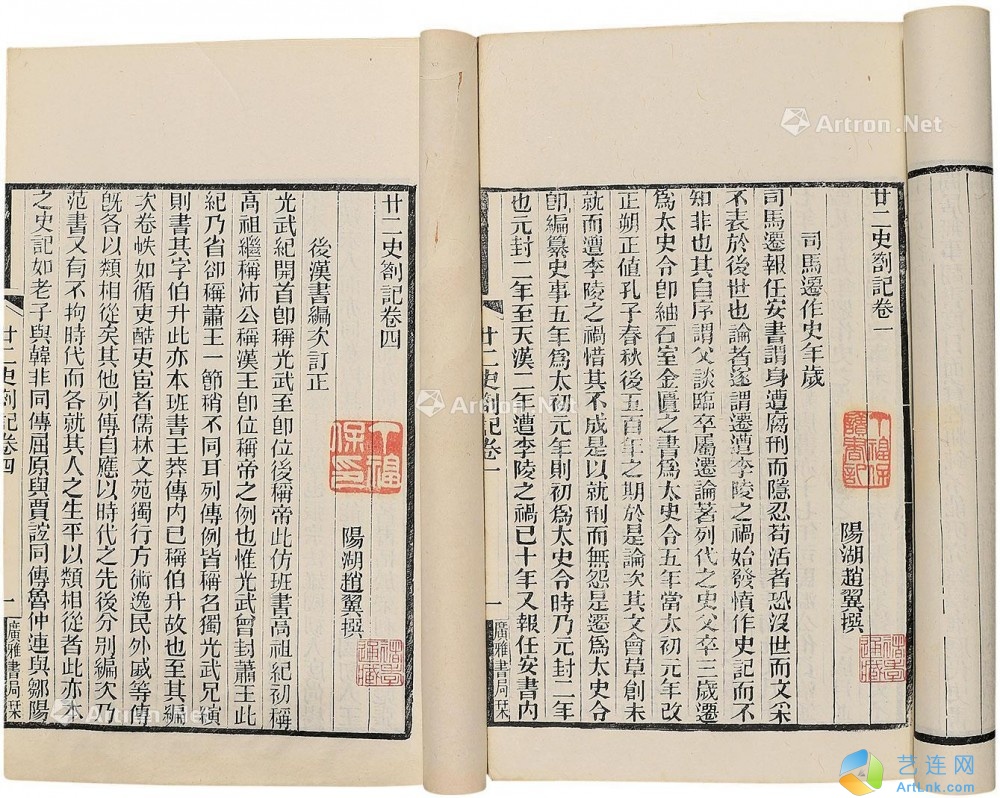 廿二史劄記卷一
陽湖趙翼撰
司馬遷作史年歲
司馬遷報任安書謂身遭腐刑而隱忍苟活者恐沒世而文采
不表於後世也論者遂謂遷遭李陵之禍始發憤作史記而不
知非也其自序謂父談臨卒屬遷論著列代之史父卒三歲遷
爲太史令卽紬石室金匱之書爲太史令五年當太初元年改
正朔正値孔子春秋後五百年之期於是論次其文會草創未
就而遭李陵之禍惜其不成是以就刑而無怨是遷爲太史令
卽編纂史事五年爲太初元年則初爲太史令時乃元封二年
也元封二年至天漢二年遭李陵之禍已十年又報任安書內
廿二史劄記卷一
一
廣雅書局栞
廿二史劄記卷四
陽湖趙翼撰
後漢書編次訂正
光武紀開首卽稱光武至卽位後稱帝此仿班書高祖紀初稱
高祖繼稱沛公稱漢王卽位稱帝之例也惟光武曾封蕭王此
紀乃省卻稱蕭王一節稍不同耳列傳例皆稱名獨光武兄演
則書其字伯升此亦本班書王莽傳內已稱伯升故也至其編
次卷帙如循吏酷吏宦者儒林文苑獨行方術逸民外戚等傳
旣各以類相從矣其他列傳自應以時代之先後分別編次乃
范書又有不拘時代而各就其人之生平以類相從者此亦本
之史記如老子與韓非同傳屈原與賈誼同傳魯仲連與鄒陽
廿二史劄記卷四
一
廣雅書局栞
丁福保印
丁福保讀書記
Artron.Net
Artron.Net
Artron.Net
Artron.Net
艺连网
ArtLnk.com